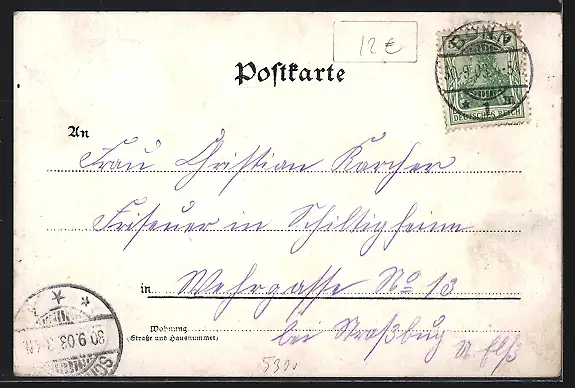 12 €
Postkarte
30.9.03
DEUTSCHES REICH
An
Frau Christian Karcher
Friseuer in Schiltigheim
in Wehrgasse No 13
Wohnung
(Straße und Hausnummer)
bei Straßbug
u. Elß
30.9.03
5300